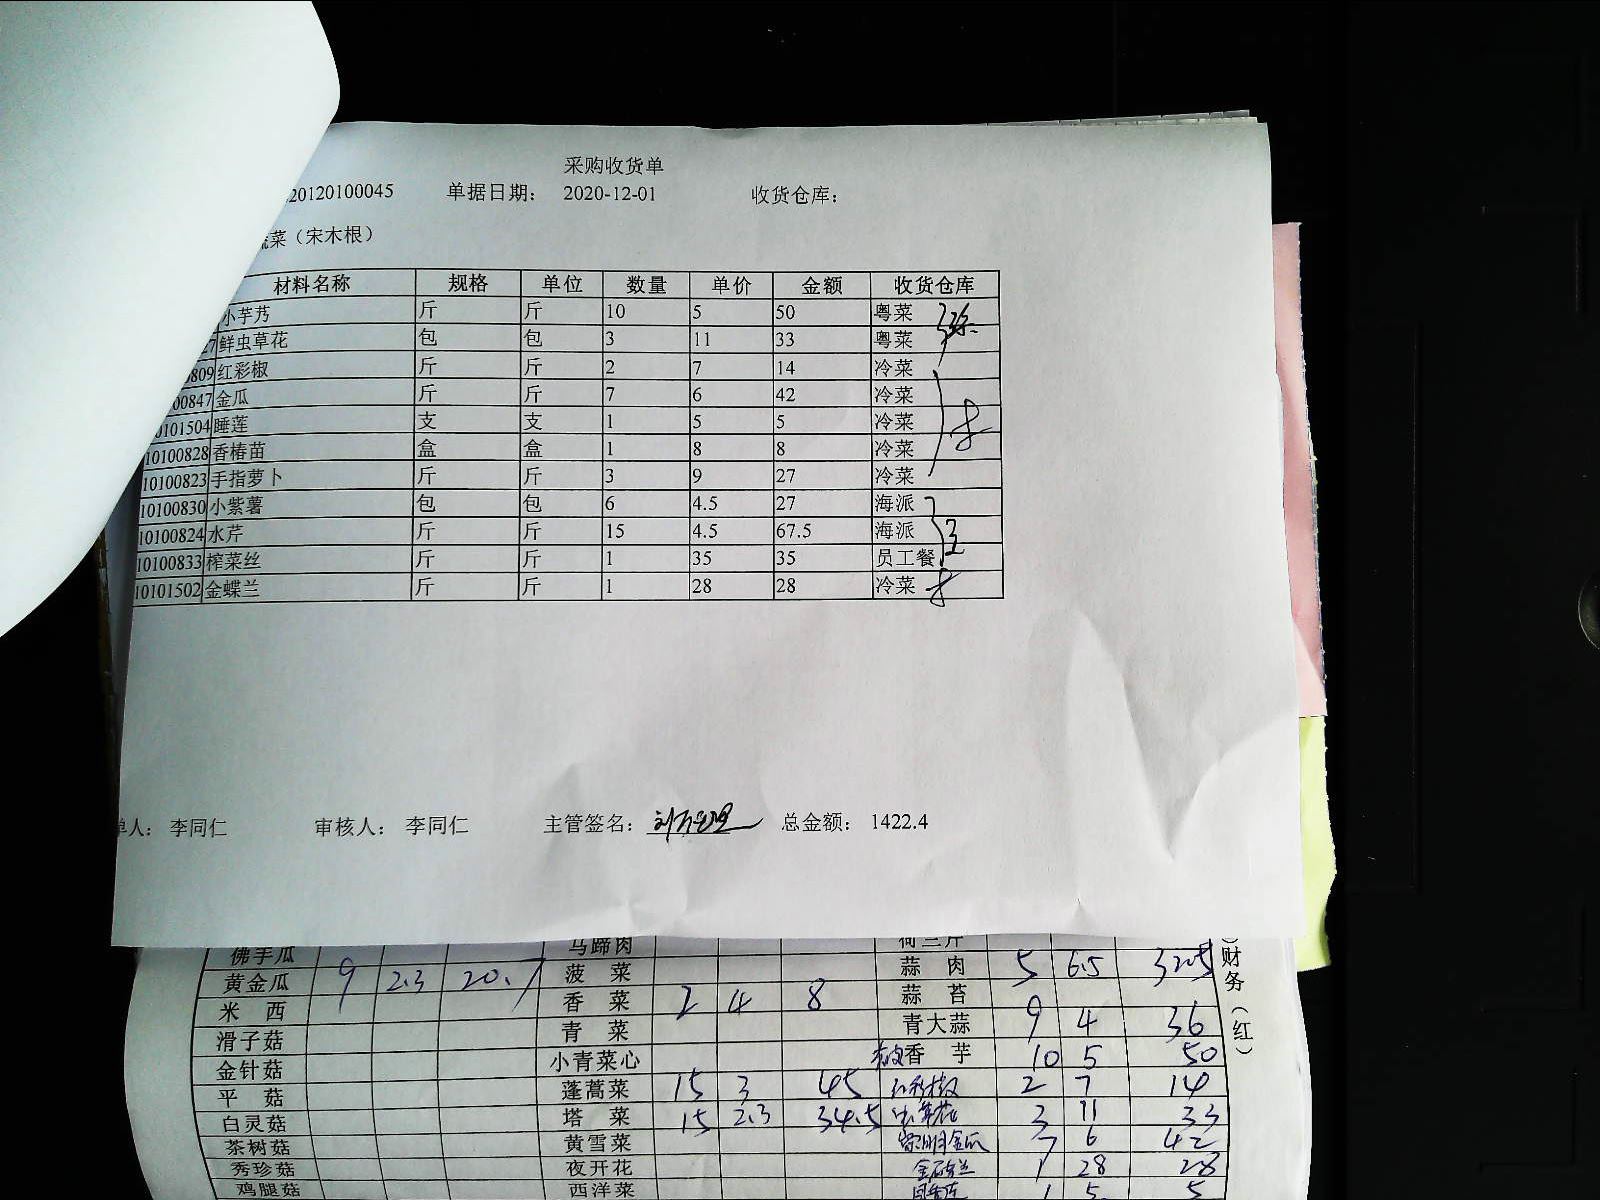 采购收货单
20120100045 单据日期: 2020-12-01 收货仓库:
蔬菜（宋木根）
材料名称 规格 单位 数量 单价 金额 收货仓库
小芋艿 斤 斤 10 5 50 粤菜
27 鲜虫草花 包 包 3 11 33 粤菜
809 红彩椒 斤 斤 2 7 14 冷菜
00847 金瓜 斤 斤 7 6 42 冷菜
0101504 睡莲 支 支 1 5 5 冷菜
10100828 香椿苗 盒 盒 1 8 8 冷菜
10100823 手指萝卜 斤 斤 3 9 27 冷菜
10100830 小紫薯 包 包 6 4.5 27 海派
10100824 水芹 斤 斤 15 4.5 67.5 海派
10100833 榨菜丝 斤 斤 1 35 35 员工餐
10101502 金蝶兰 斤 斤 1 28 28 冷菜
单人: 李同仁 审核人: 李同仁 主管签名: 总金额: 1422.4
佛手瓜 马蹄肉 荷兰芹
黄金瓜 9 2.3 20.7 菠菜 蒜肉 5 6.5 32.5
米西 香菜 2 4 8 蒜苔
滑子菇 青菜 青大蒜 9 4 36
金针菇 小青菜心 香芋 10 5 50
平菇 蓬蒿菜 15 3 45 红彩椒 2 7 14
白灵菇 塔菜 15 2.3 34.5 虫草花 3 11 33
茶树菇 黄雪菜 金瓜 7 6 42
秀珍菇 夜开花 1 28 28
鸡腿菇 西洋菜 1 5 5
财务（红）